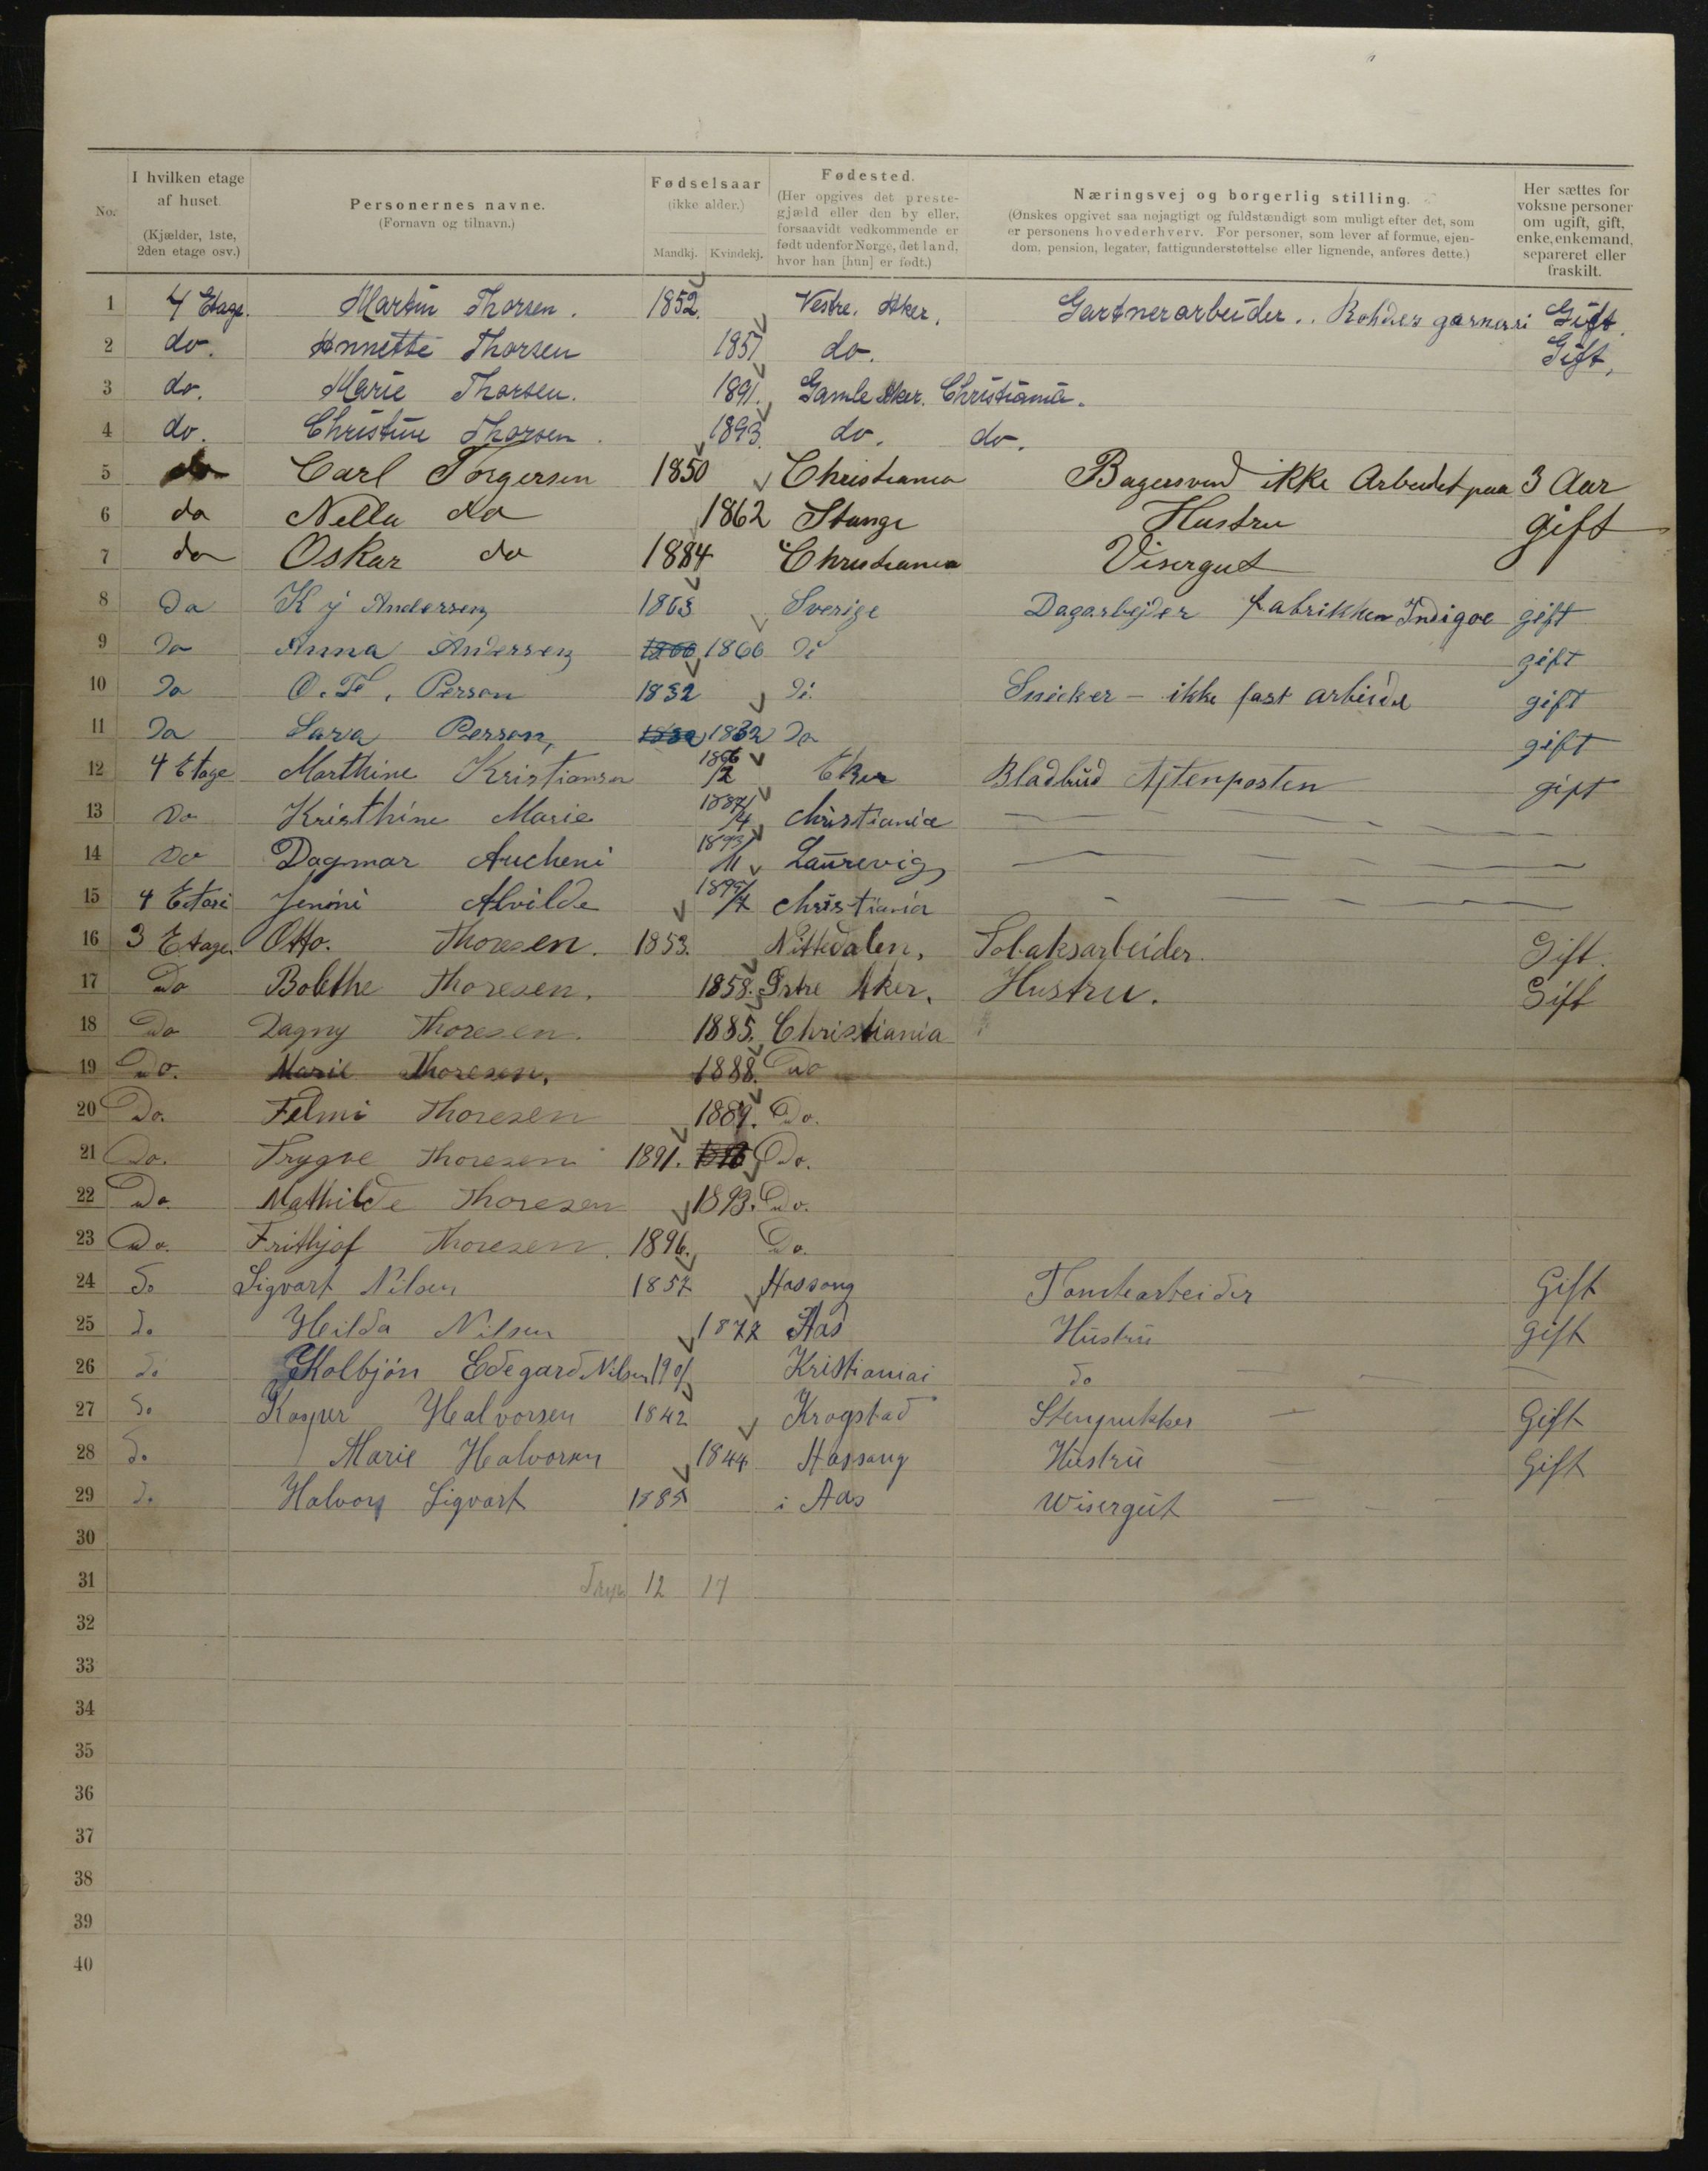 I hvilken etage af huset. (Kjælder, 1ste, 2den etage osv.)
No.
Personernes navne. (Fornavn og tilnavn.)
Fødselsaar (ikke alder.) Mandkj. Kvindekj.
Fødested. (Her opgives det prestegjæld eller den by eller, forsaavidt vedkommende er født udenfor Norge, det land, hvor han [hun] er født.)
Næringsvej og borgerlig stilling. (Ønskes opgivet saa nøjagtigt og fuldstændigt som muligt efter det, som er personens hovederhverv. For personer, som lever af formue, ejendom, pension, legater, fattigunderstøttelse eller lignende, anføres dette.)
Her sættes for voksne personer om ugift, gift, enke, enkemand, separeret eller fraskilt.
1 4 Etage. Martin Thorsen. 1852. Vestre. Aker. Gartnerarbeider.. Rohdes Gift.
2 do. Annette Thorsen 1857 do. Gift.
3 do. Marie Thorsen. 1891. Gamle Aker. Christiania.
4 do. Christine Thorsen. 1893. do. do.
5 do Carl Torgersen 1850 Christiania Bagersvend ikke Arbeidet paa 3 Aar
6 do Nella do 1862 Stange Hustru gift
7 do Oskar do 1884 Christiania Visergut
8 Do K j Andersen 1863 Sverige Dagarbejder fabrikken Indigoe gift
9 Do Anna Andersen 1866 1866 Di gift
10 Do O. Person 1832 Di Snicker - ikke fast arbeide gift
11 Do Sara Person, 1832 1832 Do gift
12 4 Etage Marthine Kristiansen 1866/2 Eker Bladbud Aftenposten gift
13 Do Kristhine Marie 1887/4 Christiania
14 Do Dagmar 1893/11 Laurevig
15 4 Jenni Alvilde 1899/7 Christiania
16 3 Etage. Otto. Thoresen. 1853. Nittedalen, Tobaksarbeider. Gift.
17 Do Bolethe Thoresen. 1858. Østre Aker. Hustru. Gift
18 Do Dagny Thoresen. 1885. Christiania
19 Do. Marie Thoresen. 1888. Do
20 Do. Felmi Thoresen 1889. Do.
21 Do. Trygve Thoresen 1891. Do.
22 Do. Mathilde Thoresen 1893. Do.
23 Do. Frithjof Thoresen. 1896. Do.
24 Do Sigvart Nilsen 1857 Hassong Tomtearbeider Gift
25 do Hilda Nilsen 1872 Aas Hustru Gift
26 do Kolbjön Edegard Nilsen 1901 Kristianiai do
27 do Kasper Halvorsen 1842 Krogstad Stenpukker Gift
28 do Marie Halvorsen 1844 Hassong Hustru Gift
29 do Halvor Sigvart 1885 i Aas Wisergut
30
31 12 17
32
33
34
35
36
37
38
39
40